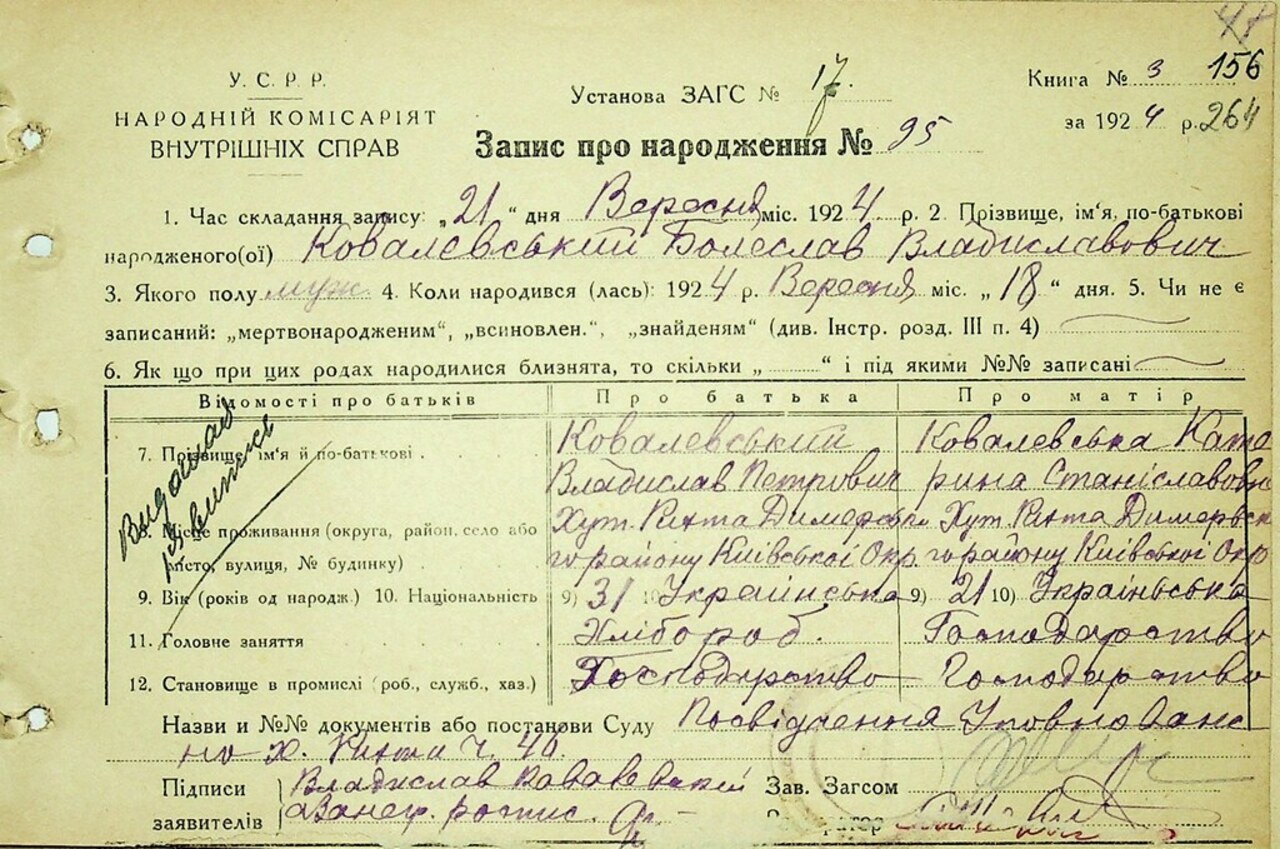 У.С.Р.Р.
НАРОДНІЙ КОМІСАРІЯТ
ВНУТРІШНІХ СПРАВ
Установа ЗАГС № 17.
Книга № 3 156
за 1924 р. 264
Запис про народження № 95
1. Час складання запису: „21" дня Вересня міс. 1924 р. 2. Прізвище, ім'я, по-батькові
народженого(ої) Ковалевський Болеслав Владиславович
3. Якого полу муж. 4. Коли народився (лась): 1924 р. Вересня міс. „18" дня. 5. Чи не є
записаний: „мертвонародженим", „всиновлен.", „знайденям" (див. Інстр. розд. III п. 4)
6. Як що при цих родах народилися близнята, то скільки „ " і під якими №№ записані
Відомості про батьків Про батька Про матір
7. Прізвище, ім'я й по-батькові Ковалевський Ковалевська Кате
Владислав Петрович рина Станіславовн
8. Місце проживання (округа, район, село або Хут. Рихта Димерсько Хут. Рихта Димерськ
місто, вулиця, № будинку) го району Київської Окр. го району Київської Окр
9. Вік (років од народж.) 10. Національність 9) 31 10) Українська 9) 21 10) Українська
11. Головне заняття Хлібороб. Господарство
12. Становище в промислі (роб., служб., хаз.) Господарство Господарство
Видавлав
витись
Назви и №№ документів або постанови Суду Посвідчення Уповноважс
но х. Рихти ч. 46.
Підписи Владислав Ковалевский Зав. Загсом
заявителів